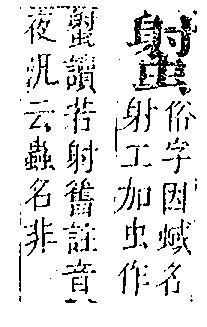 ⿱射虫
俗字因蜮名
射工加虫作
⿱射虫讀若射舊註音
夜汎云蟲名非